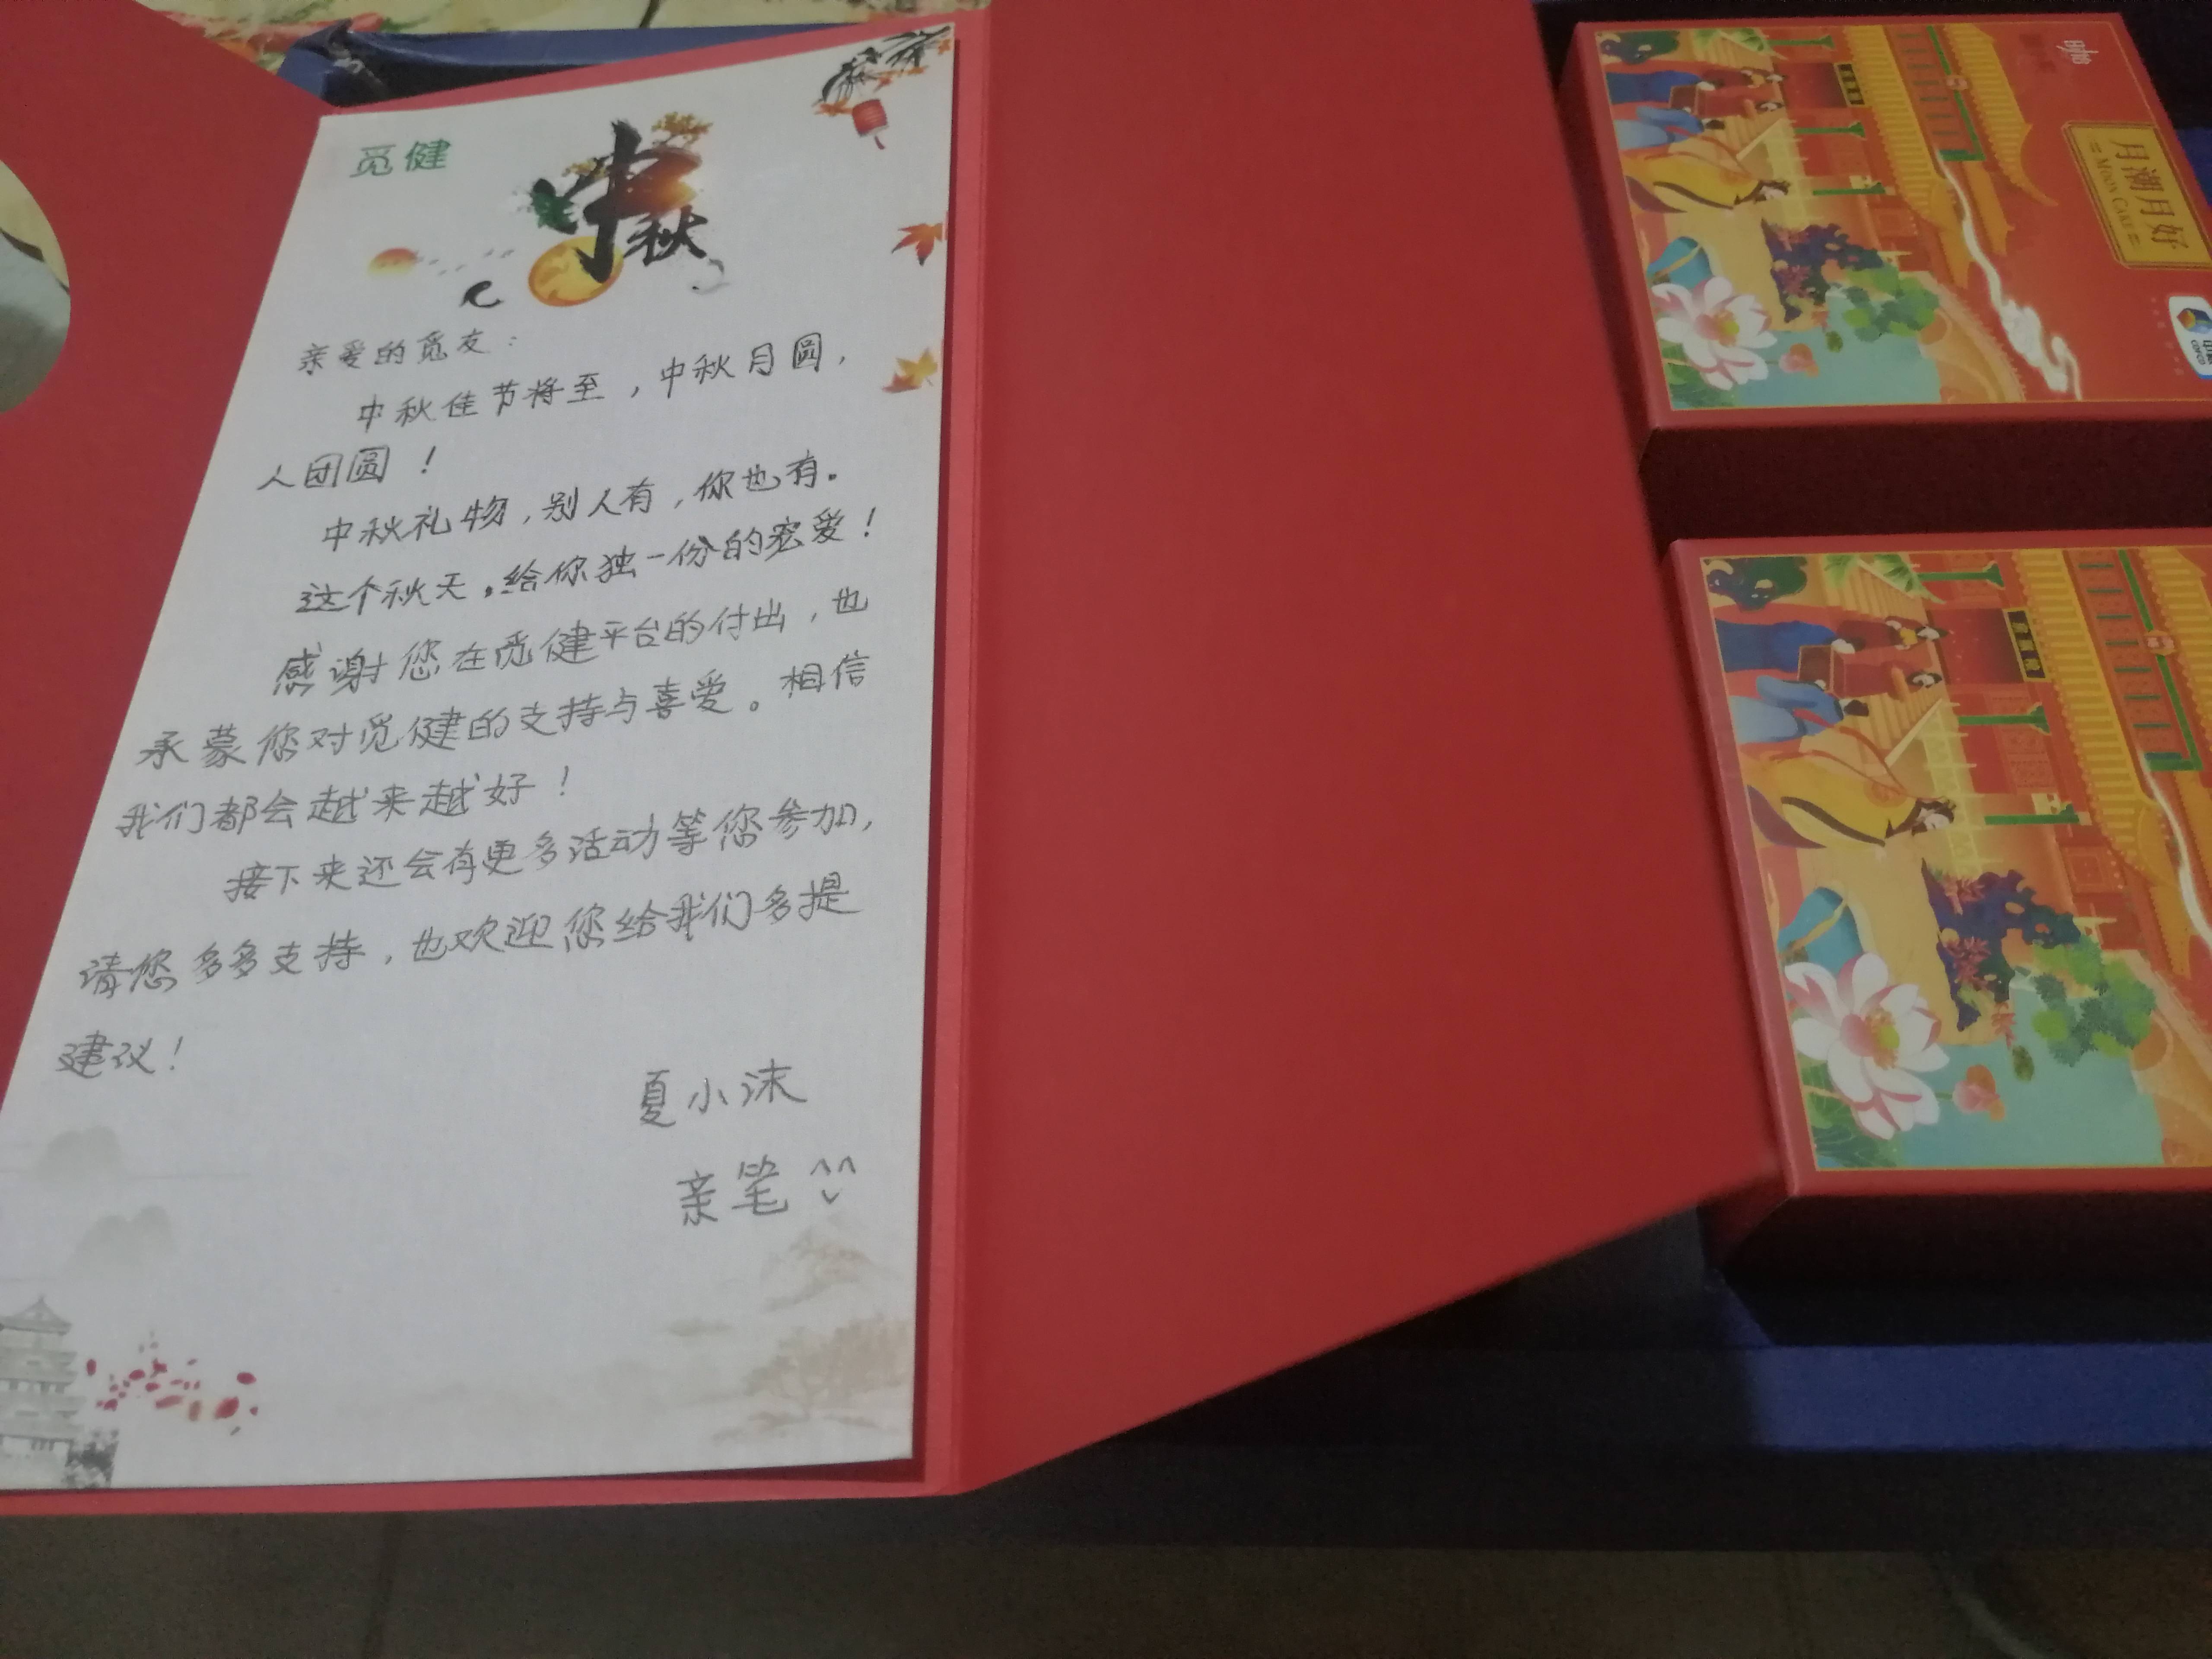 觅健
中秋
亲爱的觅友：
中秋佳节将至，中秋月圆，
人团圆！
中秋礼物，别人有，你也有。
这个秋天，给你独一份的宠爱！
感谢您在觅健平台的付出，也
承蒙您对觅健的支持与喜爱。相信
我们都会越来越好！
接下来还会有更多活动等您参加，
请您多多支持，也欢迎您给我们多提
建议！
夏小沫
亲笔
月潮月好
MOON CAKE